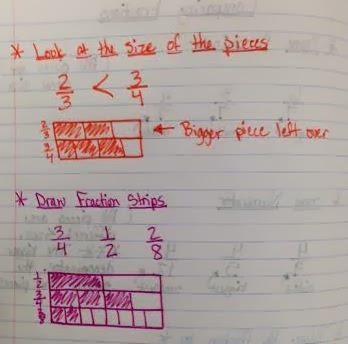 * Look at the size of the pieces
2/3 < 3/4
2/3
3/4
← Bigger piece left over
* Draw Fraction Strips
3/4 1/2 2/8
1/2
3/4